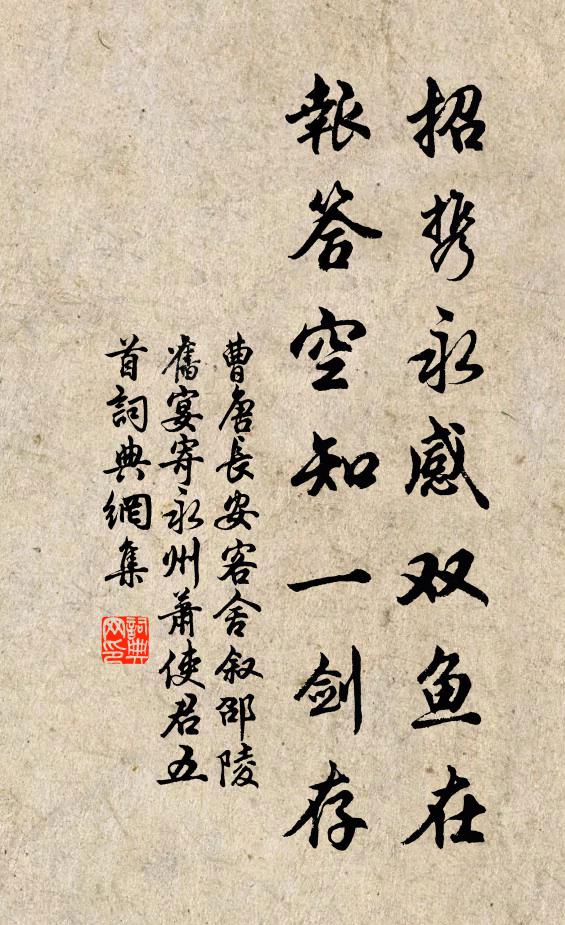 招携永感双鱼在
報答空知一剑存
曹唐長安客舍叙邵陵
舊宴寄永州蕭使君五
首詞典網集
詞典網印